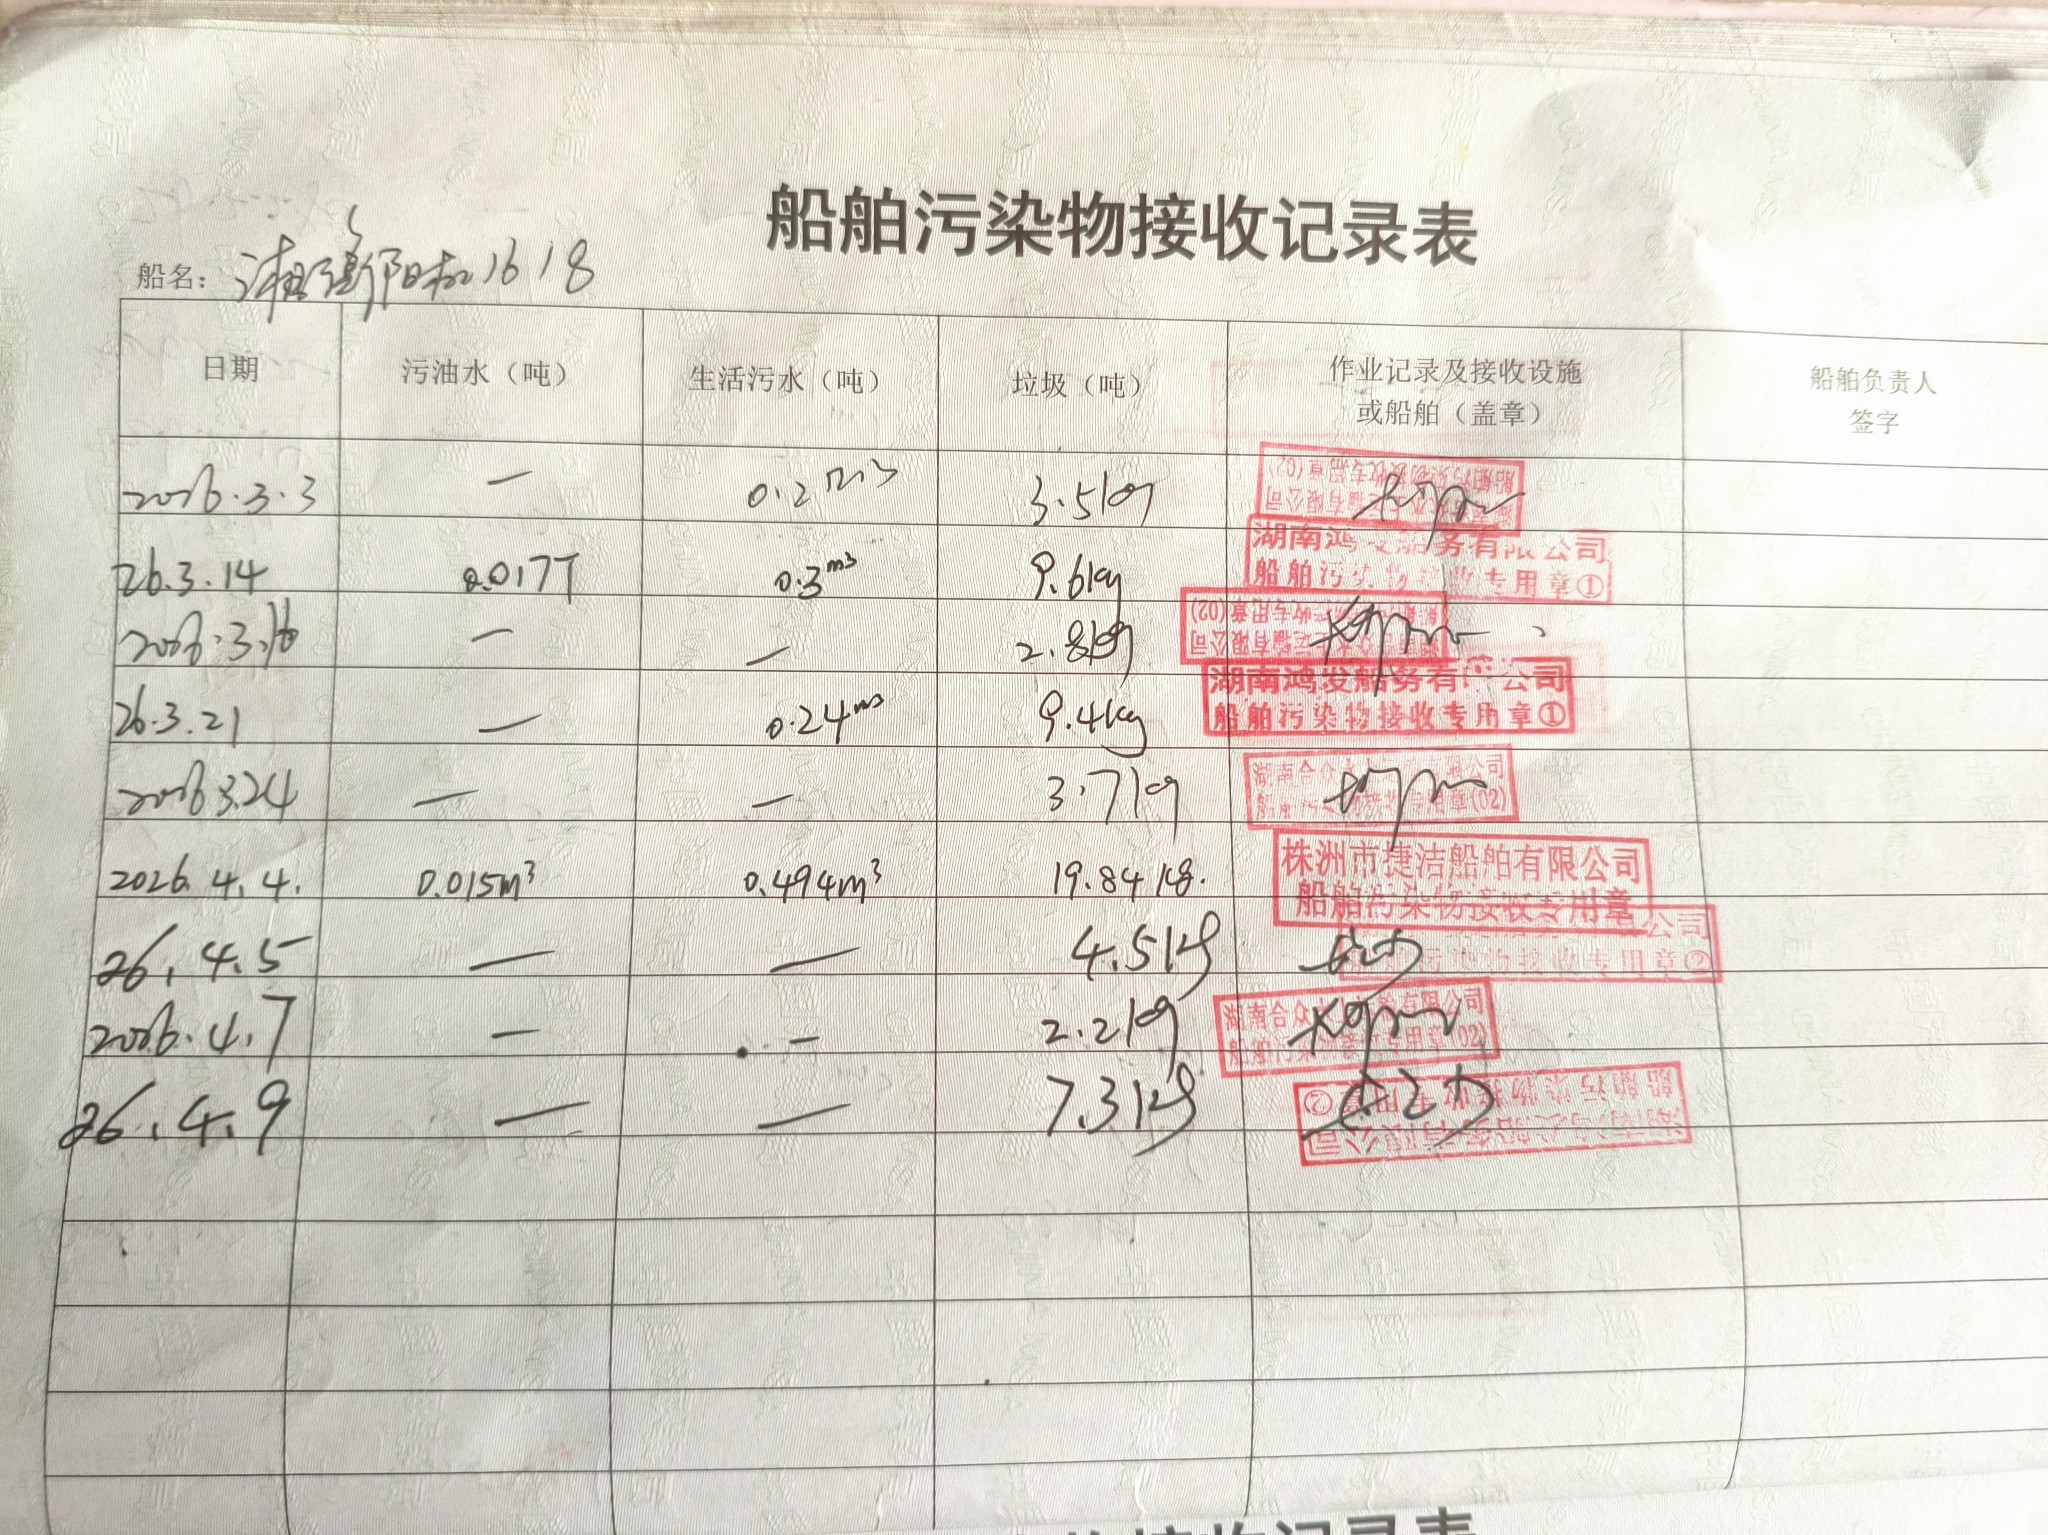 船舶污染物接收记录表
船名：湘衡阳机1618
日期 污油水（吨） 生活污水（吨） 垃圾（吨） 作业记录及接收设施或船舶（盖章） 船舶负责人签字
2026.3.3 — 0.2m³ 3.5kg 船舶污染物接收专用章(02)
26.3.14 0.017T 0.3m³ 9.6kg 湖南鸿发船务有限公司 船舶污染物接收专用章①
2026.3.16 — — 2.8kg
26.3.21 — 0.24m³ 9.4kg 湖南鸿发船务有限公司 船舶污染物接收专用章①
2026.3.24 — — 3.7kg 湖南合众 公司 专用章(02)
2026.4.4. 0.015m³ 0.494m³ 19.84kg. 株洲市捷洁船舶有限公司 船舶污染物接收专用章
26.4.5 — — 4.5kg 公司 污染物接收专用章②
2026.4.7 — — 2.2kg 湖南合众 有限公司 船舶污染 专用章(02)
26.4.9 — — 7.3kg 船舶污染物接收专用章②
接收记录表